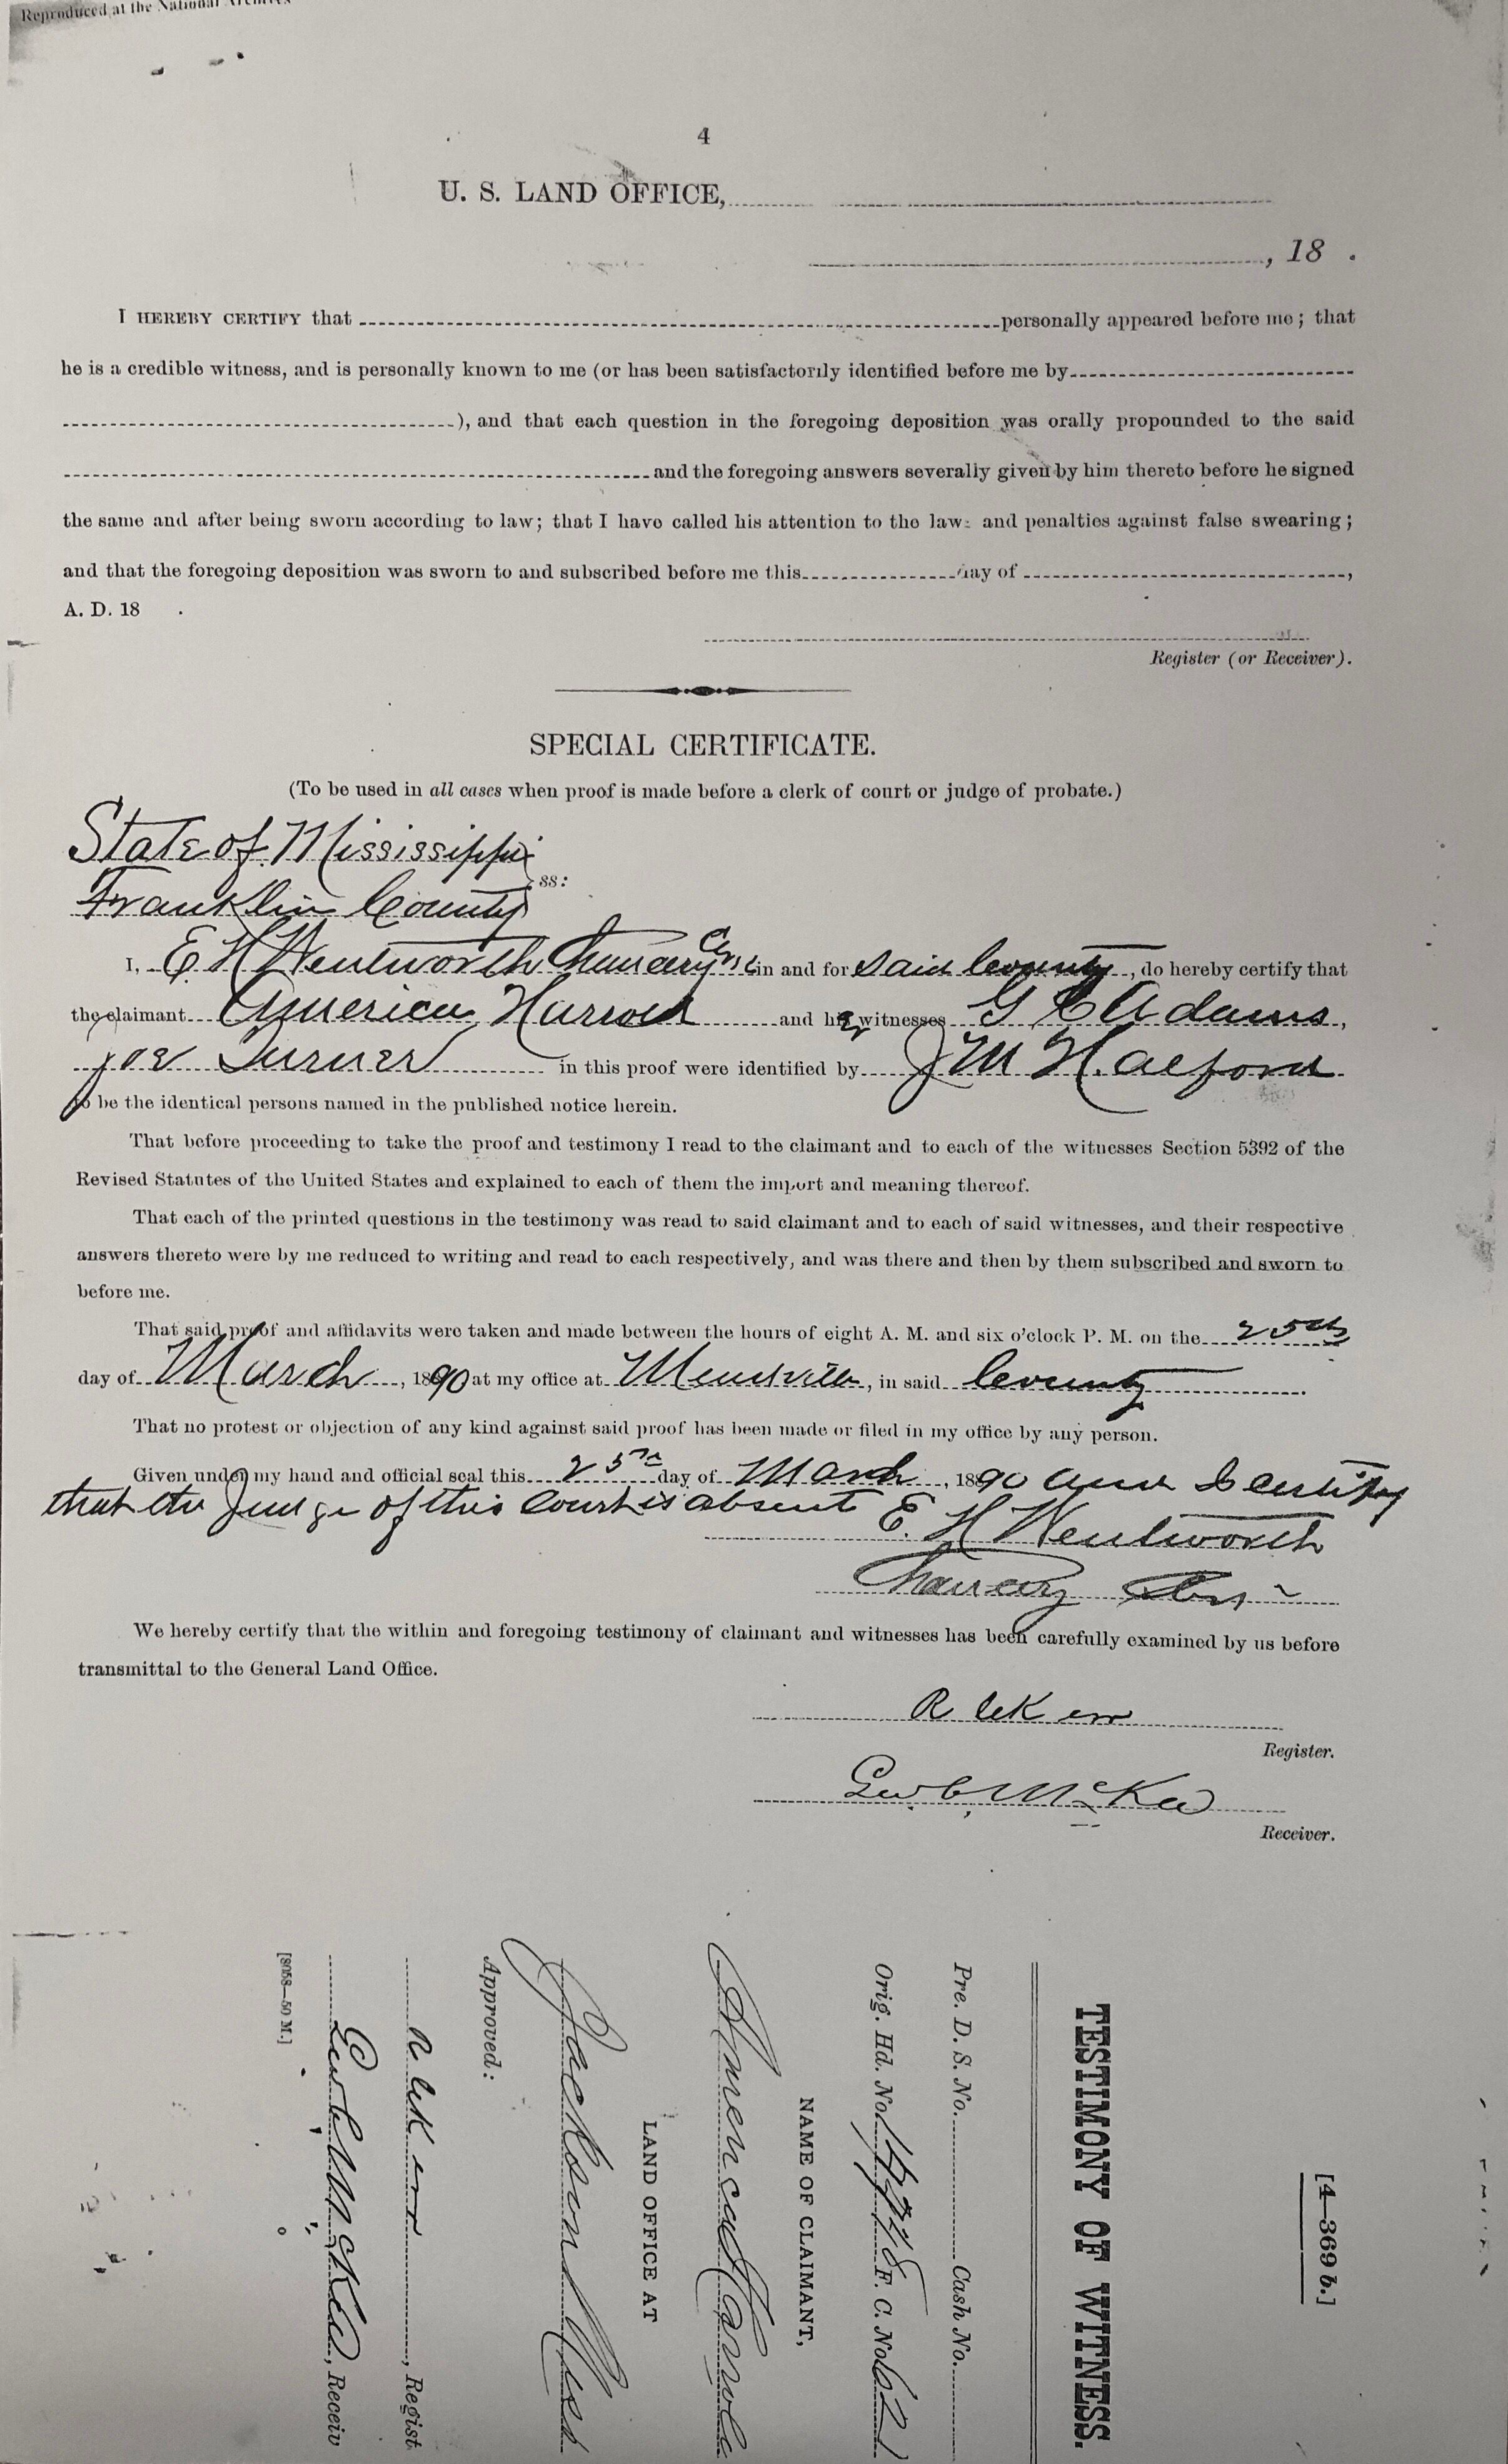 Reproduced at the National Archives
4
U. S. LAND OFFICE,
, 18 .
I HEREBY CERTIFY that personally appeared before me; that
he is a credible witness, and is personally known to me (or has been satisfactorily identified before me by
), and that each question in the foregoing deposition was orally propounded to the said
and the foregoing answers severally given by him thereto before he signed
the same and after being sworn according to law; that I have called his attention to the law: and penalties against false swearing;
and that the foregoing deposition was sworn to and subscribed before me this day of ,
A. D. 18 .
Register (or Receiver).
SPECIAL CERTIFICATE.
(To be used in all cases when proof is made before a clerk of court or judge of probate.)
State of Mississippi
ss:
Franklin County
I, E H Wentworth Chancery Clerk in and for said County, do hereby certify that
the claimant America Harrold and her witnesses G C Adams,
Joe Turner in this proof were identified by J M Halford
to be the identical persons named in the published notice herein.
That before proceeding to take the proof and testimony I read to the claimant and to each of the witnesses Section 5392 of the
Revised Statutes of the United States and explained to each of them the import and meaning thereof.
That each of the printed questions in the testimony was read to said claimant and to each of said witnesses, and their respective
answers thereto were by me reduced to writing and read to each respectively, and was there and then by them subscribed and sworn to
before me.
That said proof and affidavits were taken and made between the hours of eight A. M. and six o'clock P. M. on the 25th
day of March, 1890 at my office at Meadville, in said County.
That no protest or objection of any kind against said proof has been made or filed in my office by any person.
Given under my hand and official seal this 25th day of March, 1890 and I certify
that the Judge of this Court is absent E. H Wentworth
Chancery Clerk
We hereby certify that the within and foregoing testimony of claimant and witnesses has been carefully examined by us before
transmittal to the General Land Office.
R
Register.
Geo. C. McKee
Receiver.
[4—369 b.]
TESTIMONY OF WITNESS.
Pre. D. S. No. Cash No.
Orig. Hd. No. F. C. No. 621
NAME OF CLAIMANT,
America Harrold
LAND OFFICE AT
Jackson Miss
Approved:
, Regist
Geo C McKee, Receiv
[8058—50 M.]